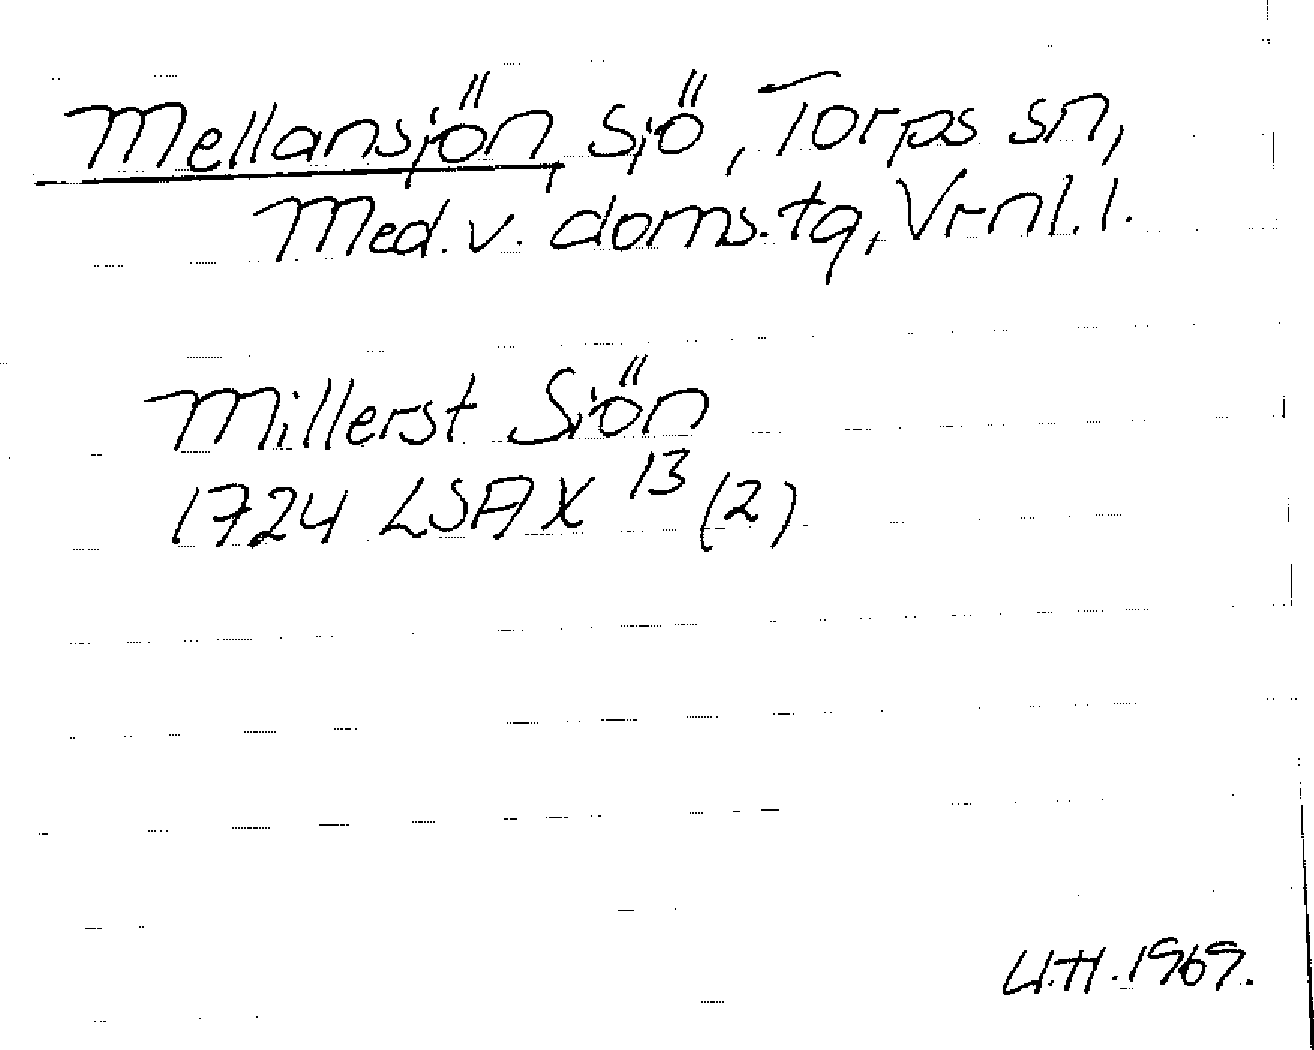 Mellansjön, sjö, Torps sn,
Med. v. doms. tg, Vrnl. l.
Millerst Siön
1724 LSA X 13 (2)
U.H. 1969.